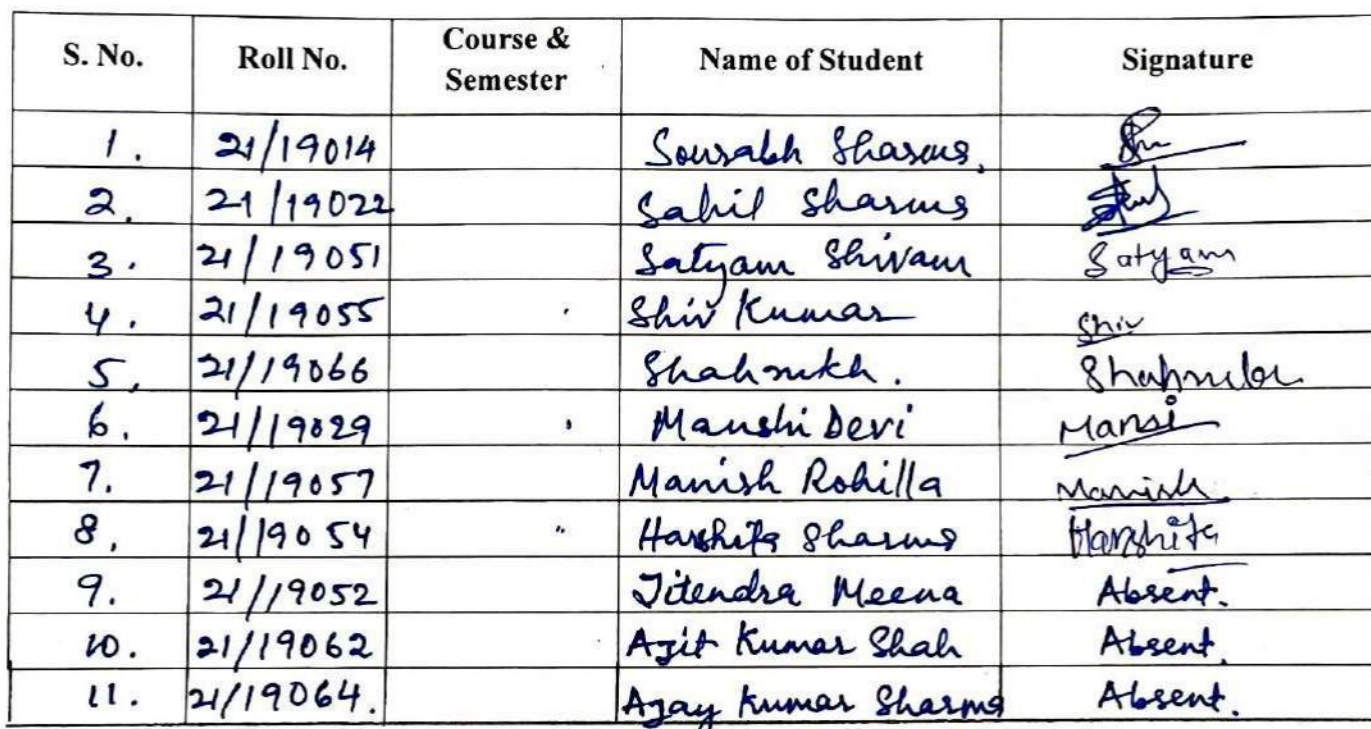 S. No. Roll No. Course & Semester Name of Student Signature
1. 21/19014 Sourabh Sharma.
2. 21/19022 Sahil Sharma
3. 21/19051 Satyam Shivam Satyam
4. 21/19055 Shiv Kumar Shiv
5. 21/19066 Shahrukh. Shahrukh
6. 21/19029 Manshi Devi Mansi
7. 21/19057 Manish Rohilla Manish
8. 21/19054 " Harshita Sharma Harshita
9. 21/19052 Jitendra Meena Absent.
10. 21/19062 Ajit Kumar Shah Absent.
11. 21/19064. Ajay Kumar Sharma Absent.